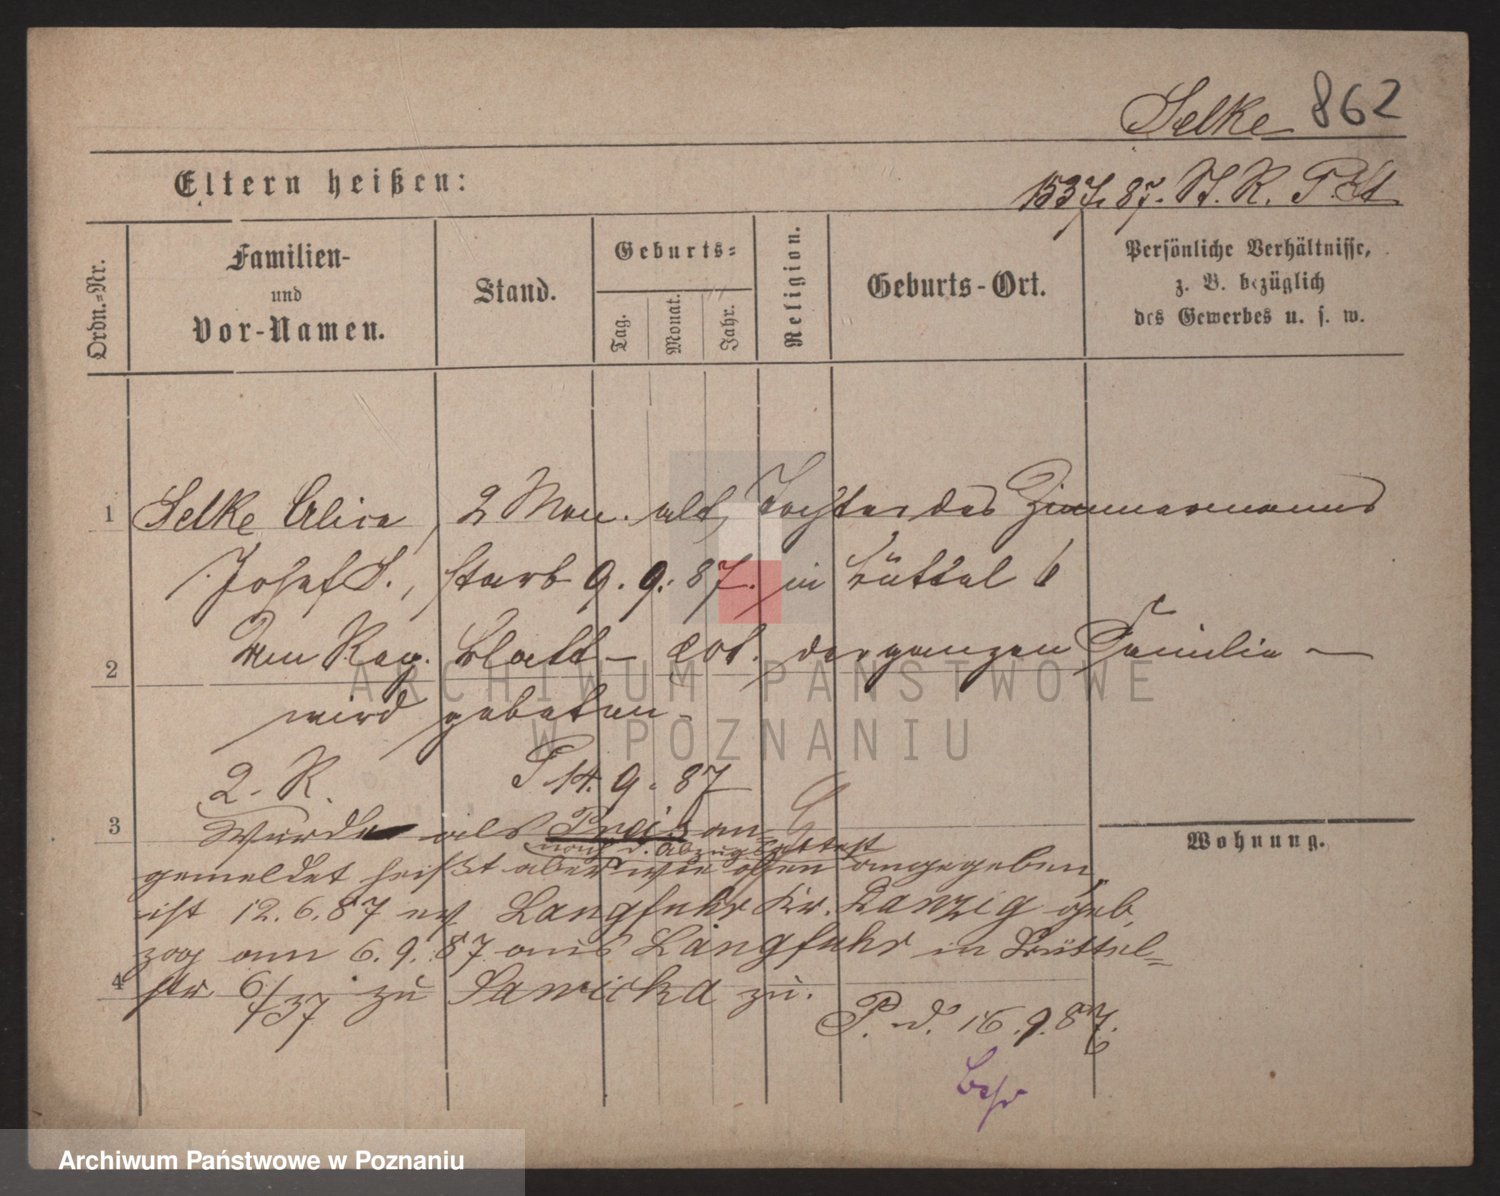 Selke 862
Eltern heißen:
1537. 87. St. R. P.
Ordn.-Nr.
Familien-
und
Vor-Namen.
Stand.
Geburts-
Tag.
Monat.
Jahr.
Religion.
Geburts-Ort.
Persönliche Verhältnisse,
z. B. bezüglich
des Gewerbes u. s. w.
1 Selke Alice, 2 Mon. alt, Tochter des Zimmermanns
Josef S., starb 9. 9. 87. in Büttel 6
Um Reg. Blatt- der ganzen Familie —
2
wird gebeten.
2. R. P 14. 9. 87
3 Wurde als Preis an-
nach d. Abzugsattest
gemeldet heißt aber wie oben angegeben,
ist 12. 6. 87 in Langfuhr Kr. Danzig geb.
zog am 6. 9. 87 aus Langfuhr in Büttel-
4 str 6/37 zu Sawicka zu.
P. d. 16. 9. 87.
Wohnung.
ARCHIWUM PAŃSTWOWE
W POZNANIU
Archiwum Państwowe w Poznaniu